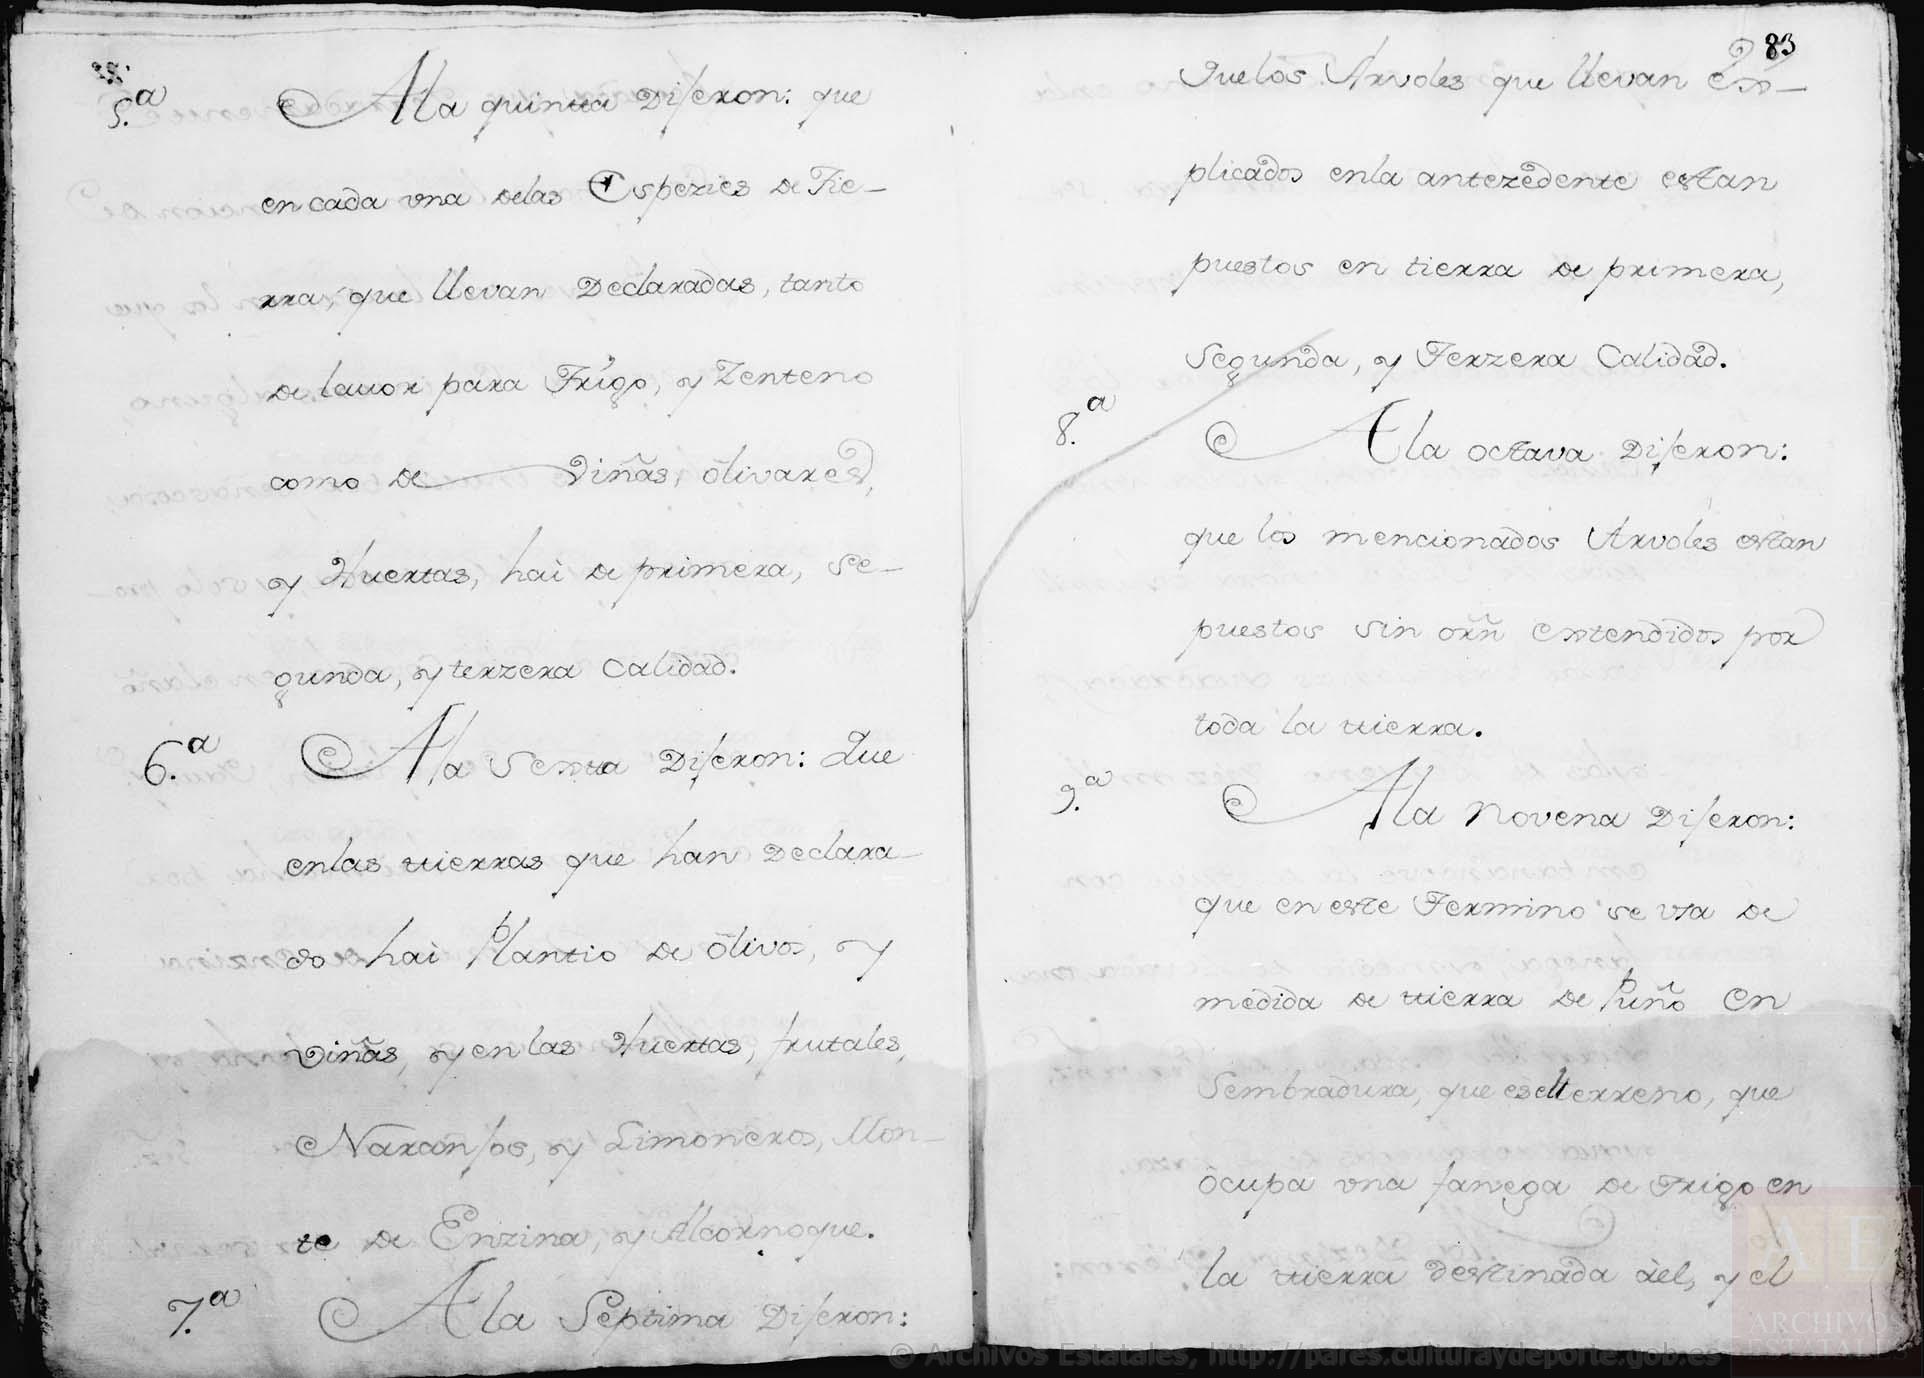 5.ª
A la quinta Dijeron: que
en cada vna delas Espezies de Tie-
rra, que llevan Declaradas, tanto
de lavor para Trigo, y Zenteno
como de Viñas, ôlivares,
y Huertas, hai de primera, se-
gunda, y terzera Calidad.
6.ª
A la Sexta Dijeron: Que
enlas tierras que han Declara-
do hai Plantio de ôlivos, y
viñas, y en las Huertas, frutales,
Naranjos, y Limoneros, Mon-
te de Enzina, y Alcornoque.
7.ª
A la Septima Dijeron:
83
Que los Arvoles que llevan Ex-
plicados enla antezedente estan
puestos en tierra de primera,
Segunda, y Terzera Calidad.
8.ª
A la octava Dijeron:
que los mencionados Arvoles estan
puestos sin orñ extendidos por
toda la tierra.
9.ª
A la Novena Dijeron:
que en este Termino se vsa de
medida de tierra de Puño en
Sembradura, que es el terreno, que
ócupa vna fanega de Trigo en
la tierra destinada àel, y el
© Archivos Estatales, http://pares.culturaydeporte.gob.es
AE
ARCHIVOS
ESTATALES